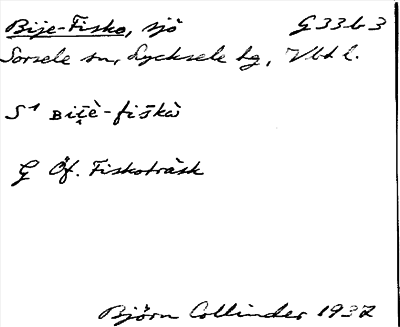 Bije-Fisko, sjö G33b3
Sorsele sn, Lycksele lg, Vbd l.
S1
G Öf. Fiskoträsk
Björn Collinder 1937